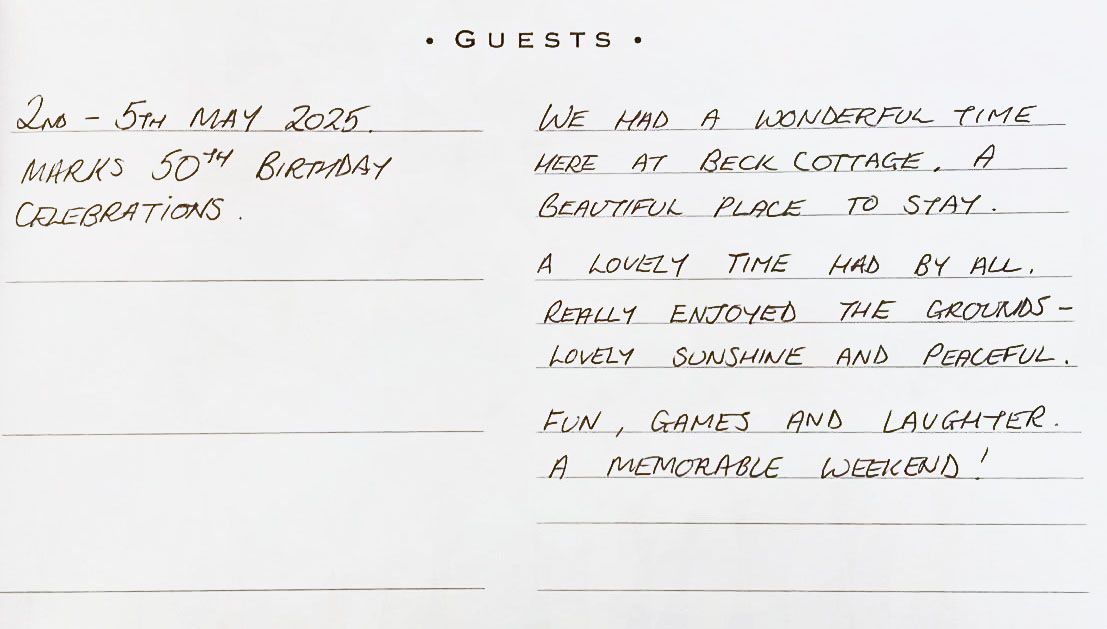 • GUESTS •
2ND - 5TH MAY 2025.
MARKS 50TH BIRTHDAY
CELEBRATIONS.
WE HAD A WONDERFUL TIME
HERE AT BECK COTTAGE. A
BEAUTIFUL PLACE TO STAY.
A LOVELY TIME HAD BY ALL.
REALLY ENJOYED THE GROUNDS -
LOVELY SUNSHINE AND PEACEFUL.
FUN, GAMES AND LAUGHTER.
A MEMORABLE WEEKEND!